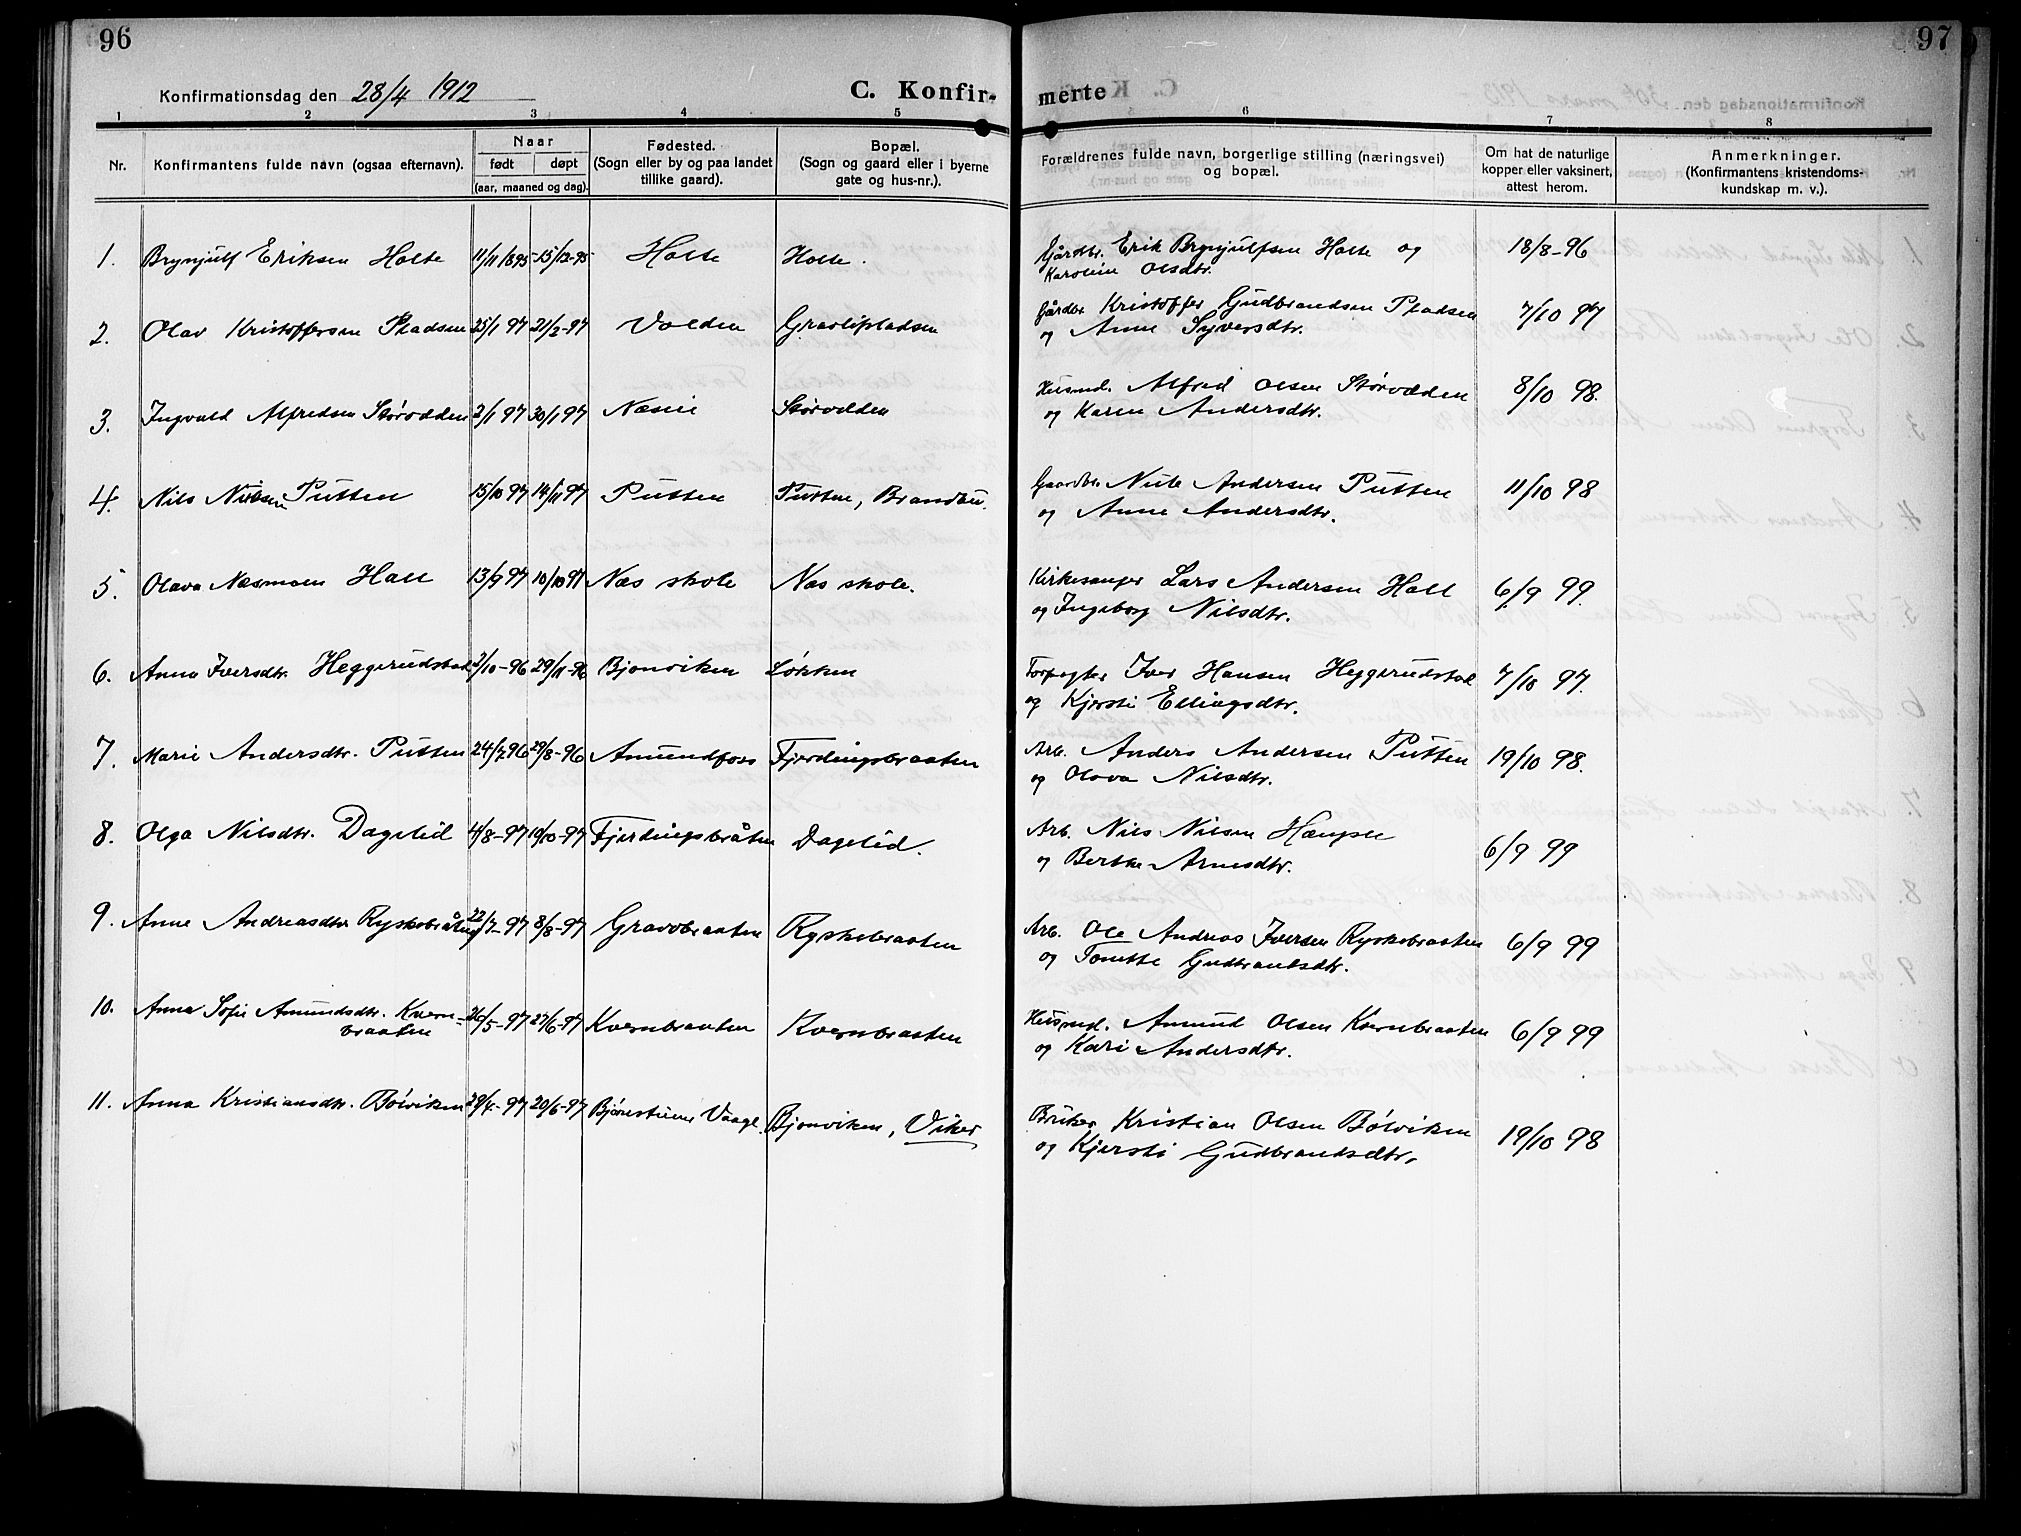 96
97
Konfirmationsdag den 28/4 1912
C. Konfir-
merte
1 2 3 4 5
6 7 8
Nr. Konfirmantens fulde navn (ogsaa efternavn). Naar født døpt (aar, maaned og dag). Fødested. (Sogn eller by og paa landet tillike gaard). Bopæl. (Sogn og gaard eller i byerne gate og hus-nr.). Forældrenes fulde navn, borgerlige stilling (næringsvei) og bopæl. Om hat de naturlige kopper eller vaksinert, attest herom. Anmerkninger. (Konfirmantens kristendoms-kundskap m. v.).
1. Brynjulf Eriksen Holte 11/11 1895 15/12-95 Holte Holte. Gårdbr. Erik Brynjulfsen Holte og 18/8-96
Karoline Olsdtr.
2. Olav Kristoffersen Pladsen 25/1 97 21/2-97 Volden Gravlipladsen Gårdbr Kristoffer Gudbrandsen Pladsen 7/10 97
og Anne Syversdtr.
3. Ingvald Alfredsen Störvolden 2/1 97 30/1 97 Næsie Störvolden Husmd. Alfred Olsen Störvolden 8/10 98.
og Karen Andersdtr.
4. Nils Nilsen Putten 15/10 97 14/11 97 Putten Putten, Brandbu. Gaardbr. Nils Andersen Putten 11/10 98
og Anne Andersdtr.
5. Olava Næsmoen Hall 13/9 97 10/10 97 Næs skole Næs skole. Kirkesanger Lars Andersen Hall 6/9 99.
og Ingeborg Nilsdtr.
6. Anna Iversdtr. Heggerudstad 3/10-96 29/11-96 Bjonviken Løkken Forpagter Iver Hansen Heggerudstad 7/10 97.
og Kjersti Ellingsdtr.
7. Marie Andersdtr. Putten 24/7 96 29/8-96 Amundfoss Fjerdingsbraaten Arb. Anders Andersen Putten 19/10 98.
og Olava Nilsdtr.
8. Olga Nilsdtr. Dagslid 4/8-97 10/10-97 Fjerdingsbråten Dagslid. Arb. Nils Nilsen Hængsle 6/9 99
og Berthe Arnesdtr.
9. Anne Andreasdtr Ryskobråten 22/7-97 8/8-97 Gravbraaten Ryskobraaten Arb. Ole Andreas Iversen Ryskobraaten 6/9 99
og Tonette Gudbrandsdtr.
10. Anna Sofie Amundsdtr. Kvern- 26/5-97 27/6-97 Kvernbraaten Kvernbraaten Husmd. Amund Olsen Kvernbraaten 6/9 99
braaten og Kari Andersdtr.
11. Anna Kristiansdtr. Bölviken 29/4-97 20/6-97 Bjørnestuen Vaagl. Bjonviken, Viker Bruker Kristian Olsen Bölviken 19/10 98
og Kjersti Gudbrandsdtr.